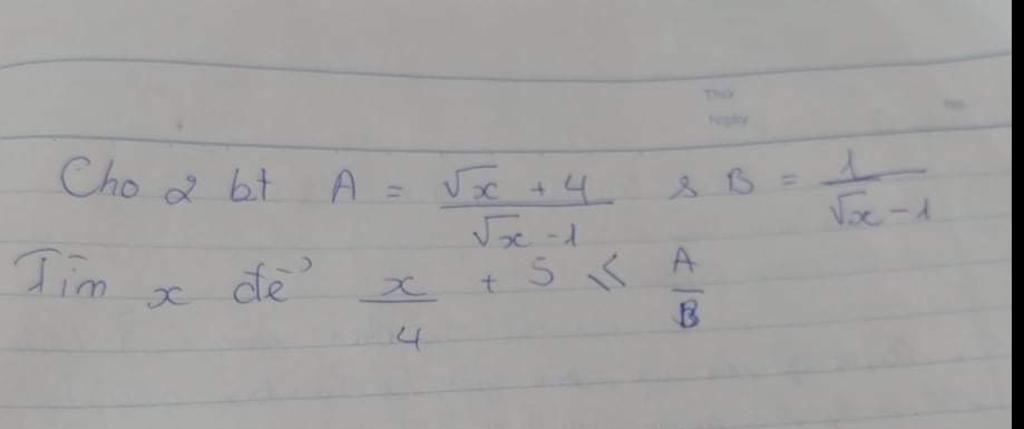 Thứ
Ngày No.
Cho 2 bt A = \frac{\sqrt{x} + 4}{\sqrt{x} - 1} & B = \frac{1}{\sqrt{x} - 1}
Tìm x để \frac{x}{4} + 5 ≤ \frac{A}{B}